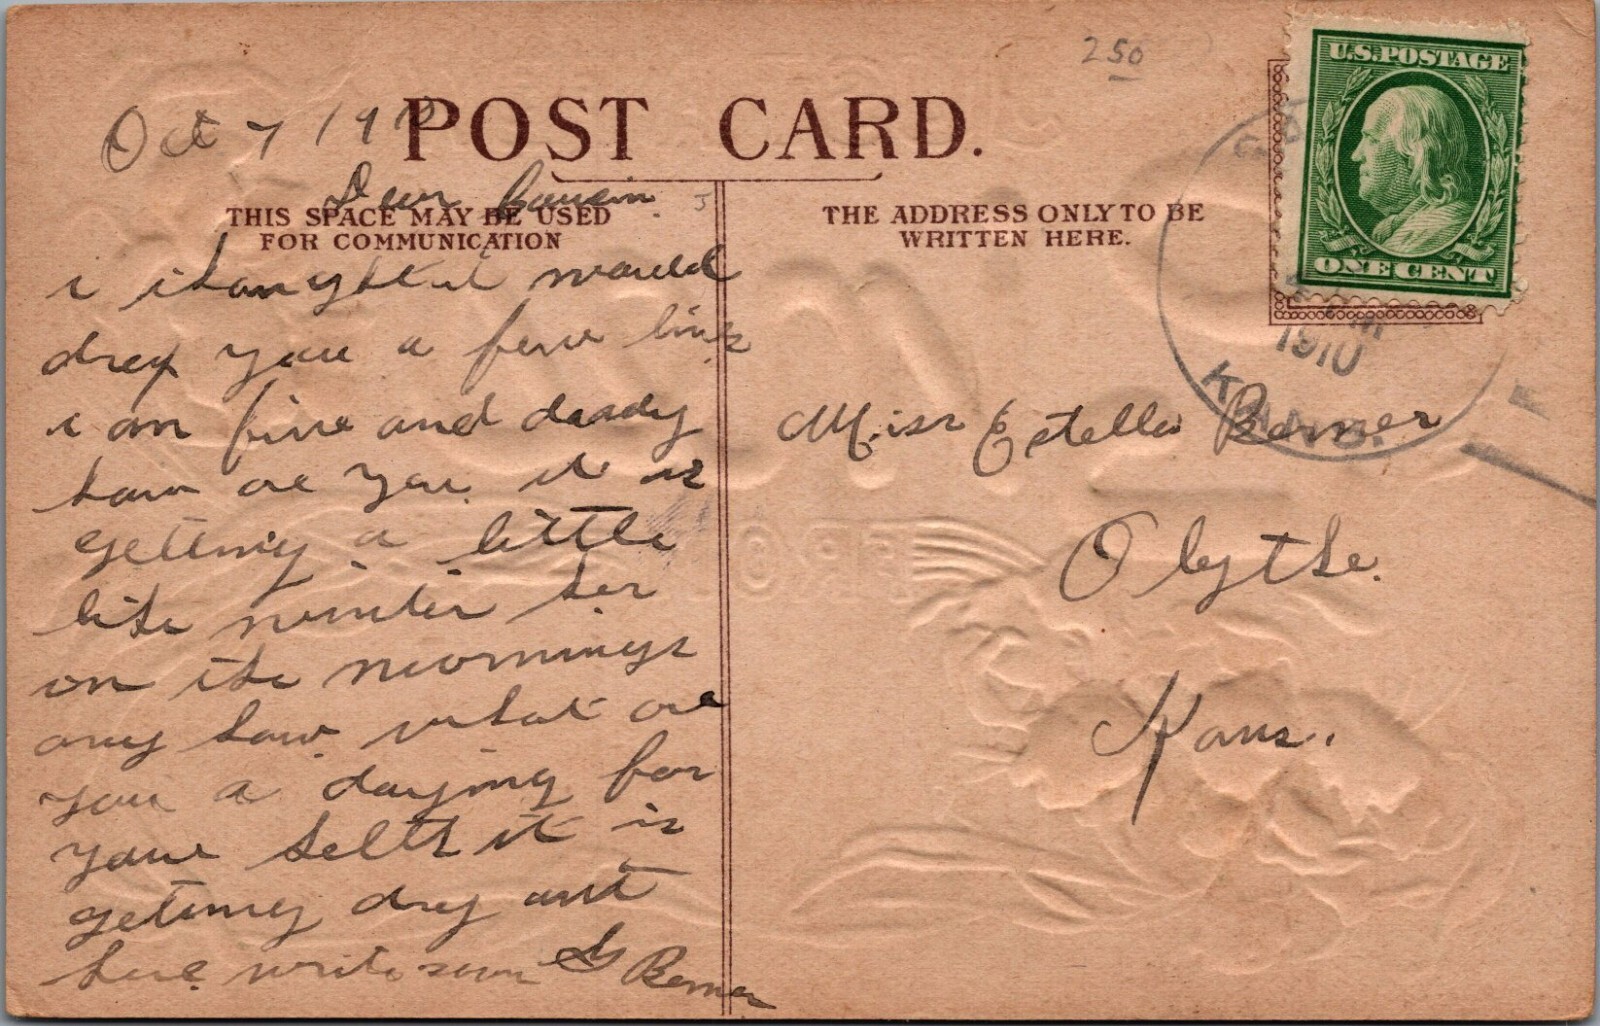 250
U.S. POSTAGE
ONE CENT
POST CARD.
Oct 7 1910
THIS SPACE MAY BE USED
FOR COMMUNICATION
THE ADDRESS ONLY TO BE
WRITTEN HERE.
1910
KANS.
Dear Cousin.
i thought i would
drop you a few lines
i am fine and dandy
how are you it is
getting a little
like winter her
on the mornings
any how. what are
you a doying for
your self it is
getting dry out
here. write soon
Miss Estella Bomer
Olythe.
Kans.